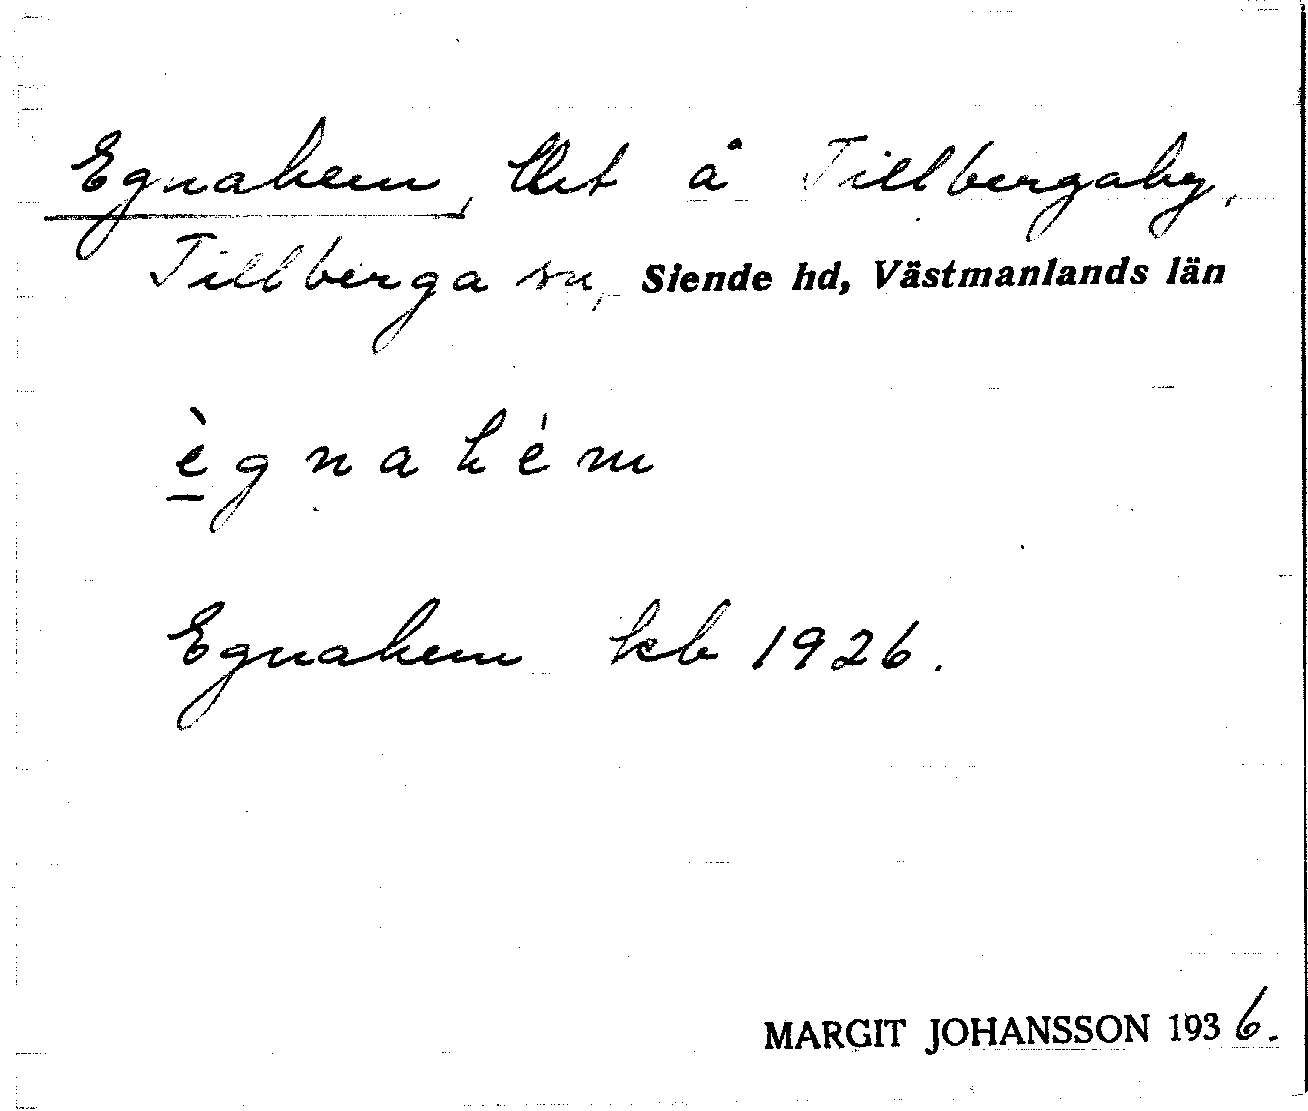 Egnahem, lht å Tillbergaby,
Tillberga sn, Siende hd, Västmanlands län
è̲gnahém
Egnahem kb 1926.
MARGIT JOHANSSON 1936.